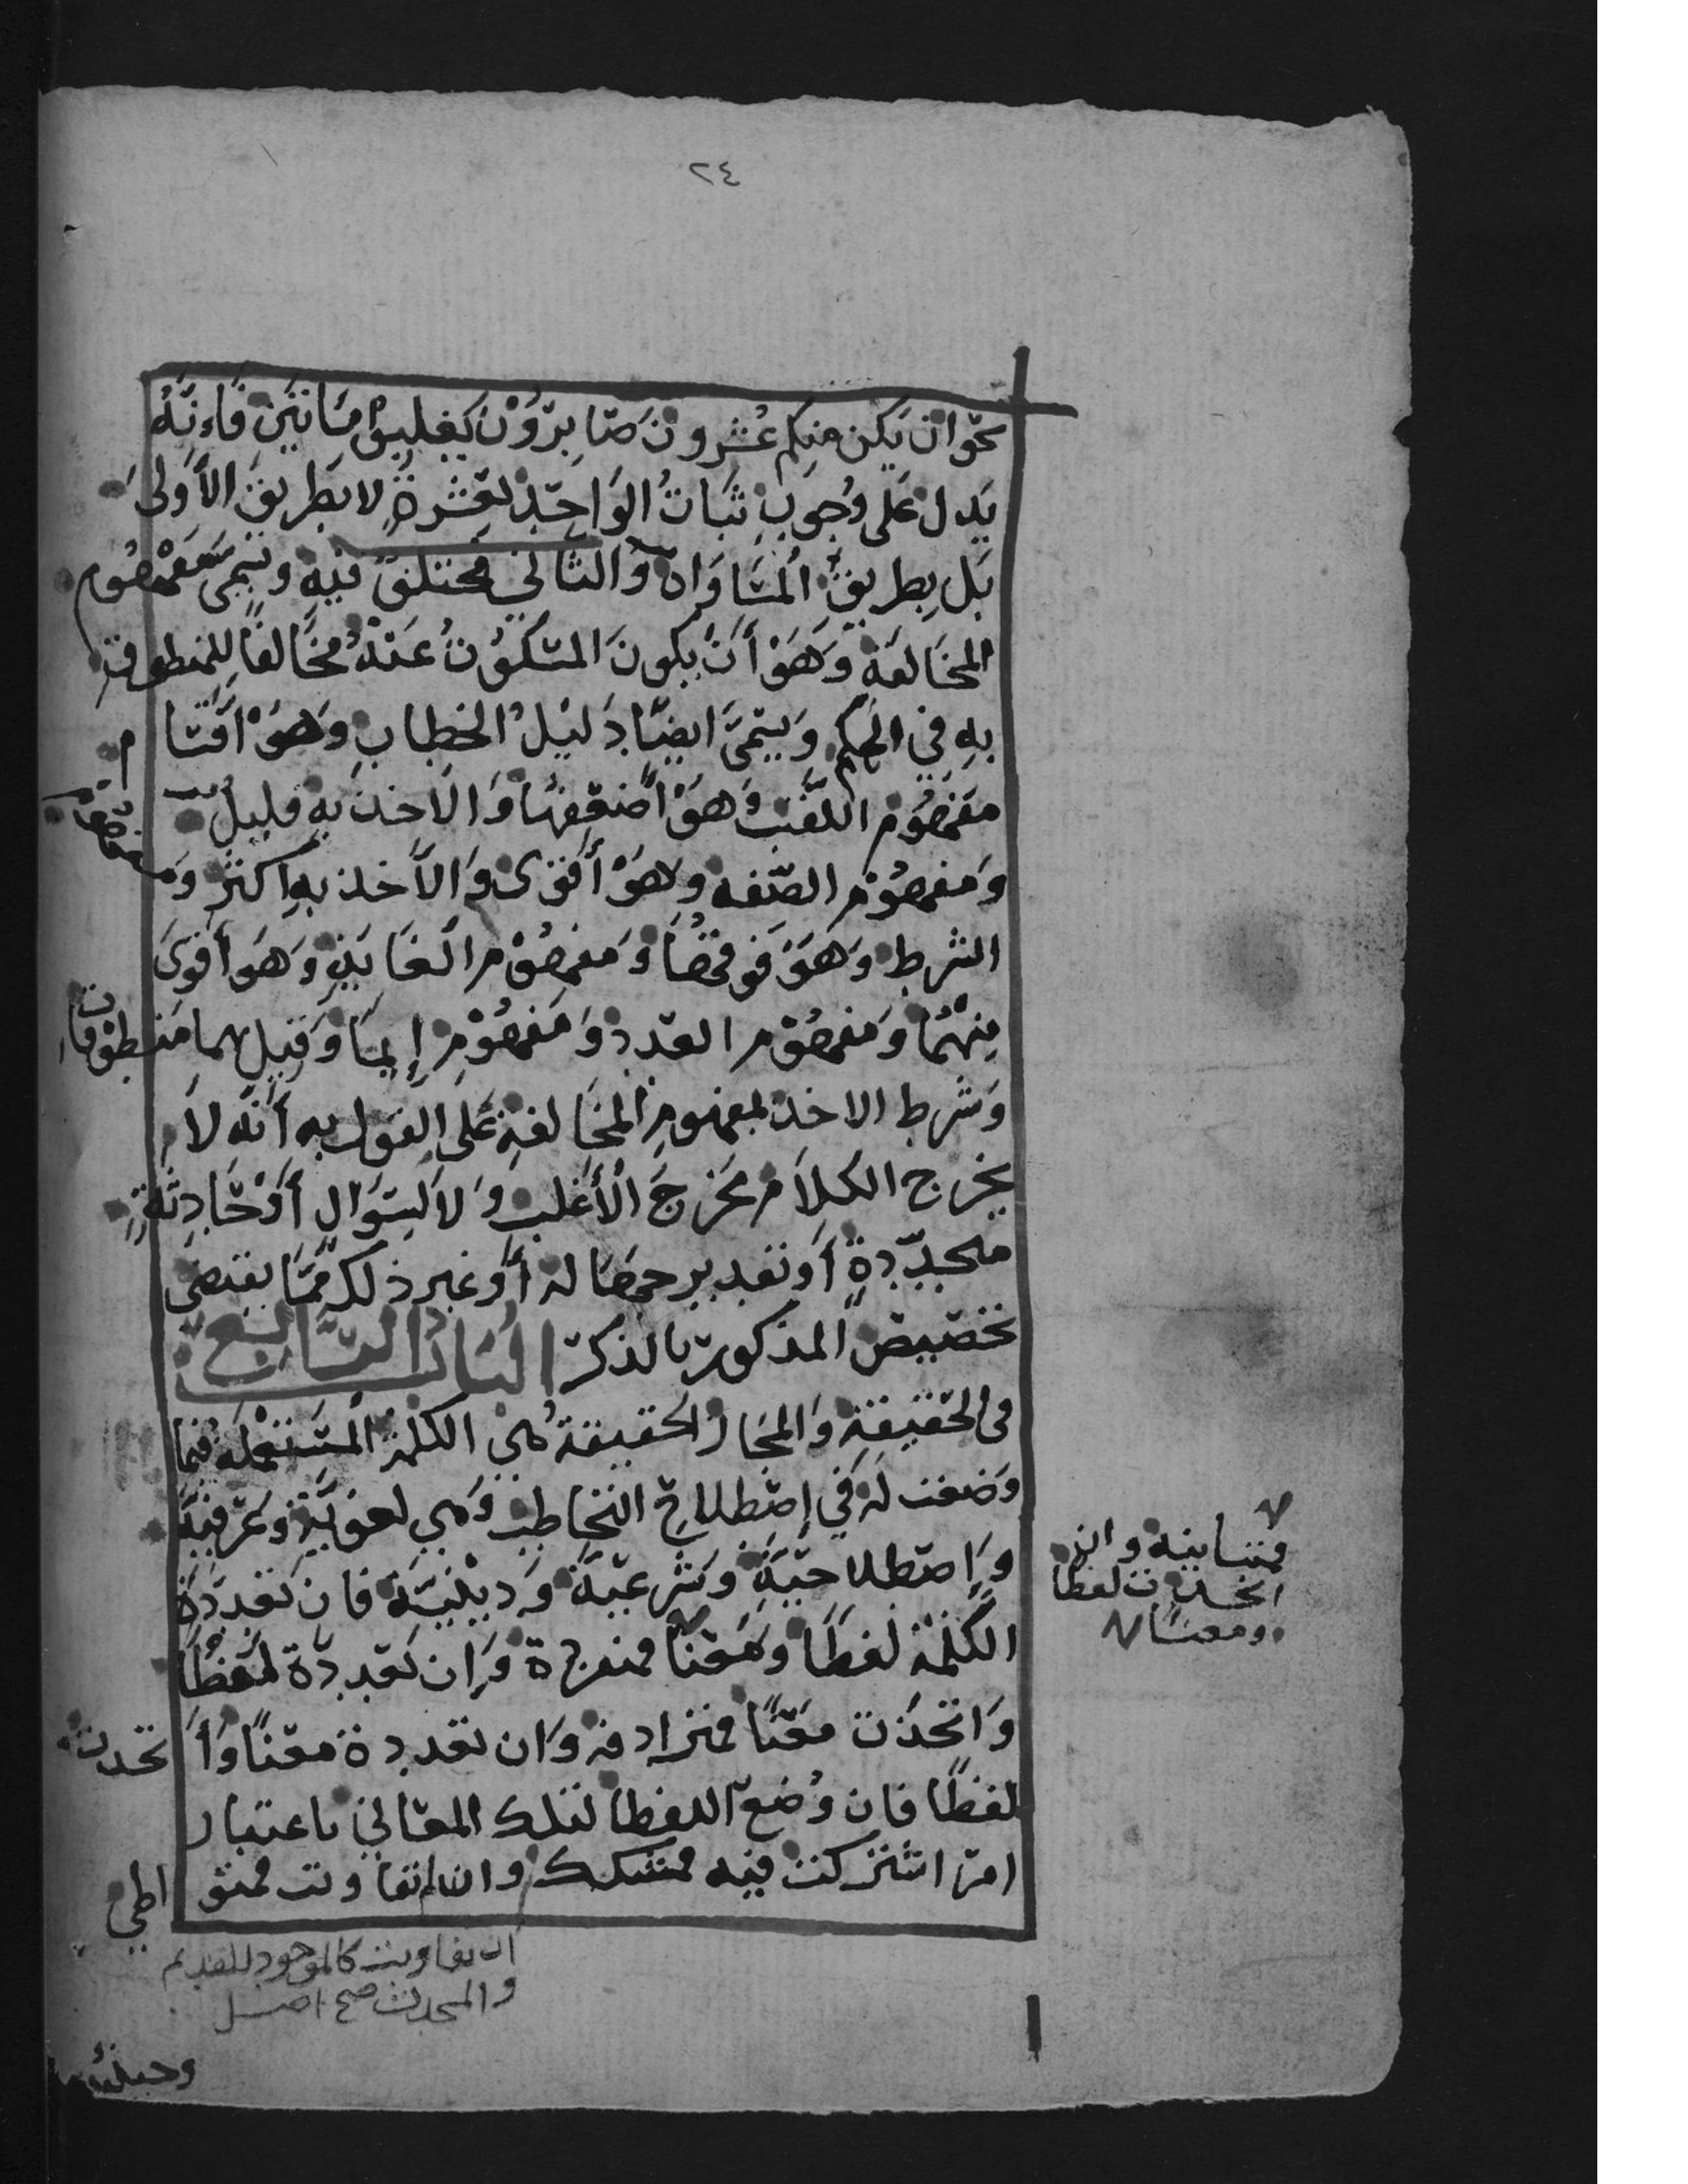 ٢٤
نحو ان يكن منكم عشرون صابرون يغلبوا مائتين فاءنه
يدل على وجوب ثبات الواحد لعشرة لا بطريق الأولى
بل بطريق المساواة والثاني مختلف فيه ويسمى مفهوم
المخالفة وهو أن يكون المسكوت عنه مخالفا للمنطوق
به في الحكم ويسمى ايضا دليل الخطاب وهو اقسام
مفهوم اللقب وهو أضعفها والاخذ به قليل
ومفهوم الصفه وهو أقوى والأخذ به اكثر ومفهوم
الشرط وهو فوقهما ومفهوم الغاية وهو أقوى
منهما ومفهوم العدد ومفهوم إنما وقيل هما منطوقان
وشرط الاخذ بمفهوم المخالفة على القول به أنه لا
يخرج الكلام مخرج الأغلب ولا لسوال أو حادثة
متجددة أو تقدير جهاله أو غير ذلك مما يقتضي
تخصيص المذكور بالذكر الباب السابع
في الحقيقة والمجاز الحقيقة هي الكلمة المستعمله فيما
وضعت له في إصطلاح التخاطب وهي لغوية وعرفية
وإصطلاحية وشرعية ودينية فان تعددة
الكلمة لفظا ومعنا فمنفردة وان تعددة لفظا
واتحدت معنا فمترادفه وان تعددة معنا وا تحدت
لفظا فان وضع اللفظ لتلك المعاني باعتبار
امر اشتركت فيه فمشكك وان لم تفاوت فمتو اطي
فمتباينه وان
اتحدت لفظا
ومعنا
ان تفاوتت كالموجود للقديم
والمحدث صح اصل